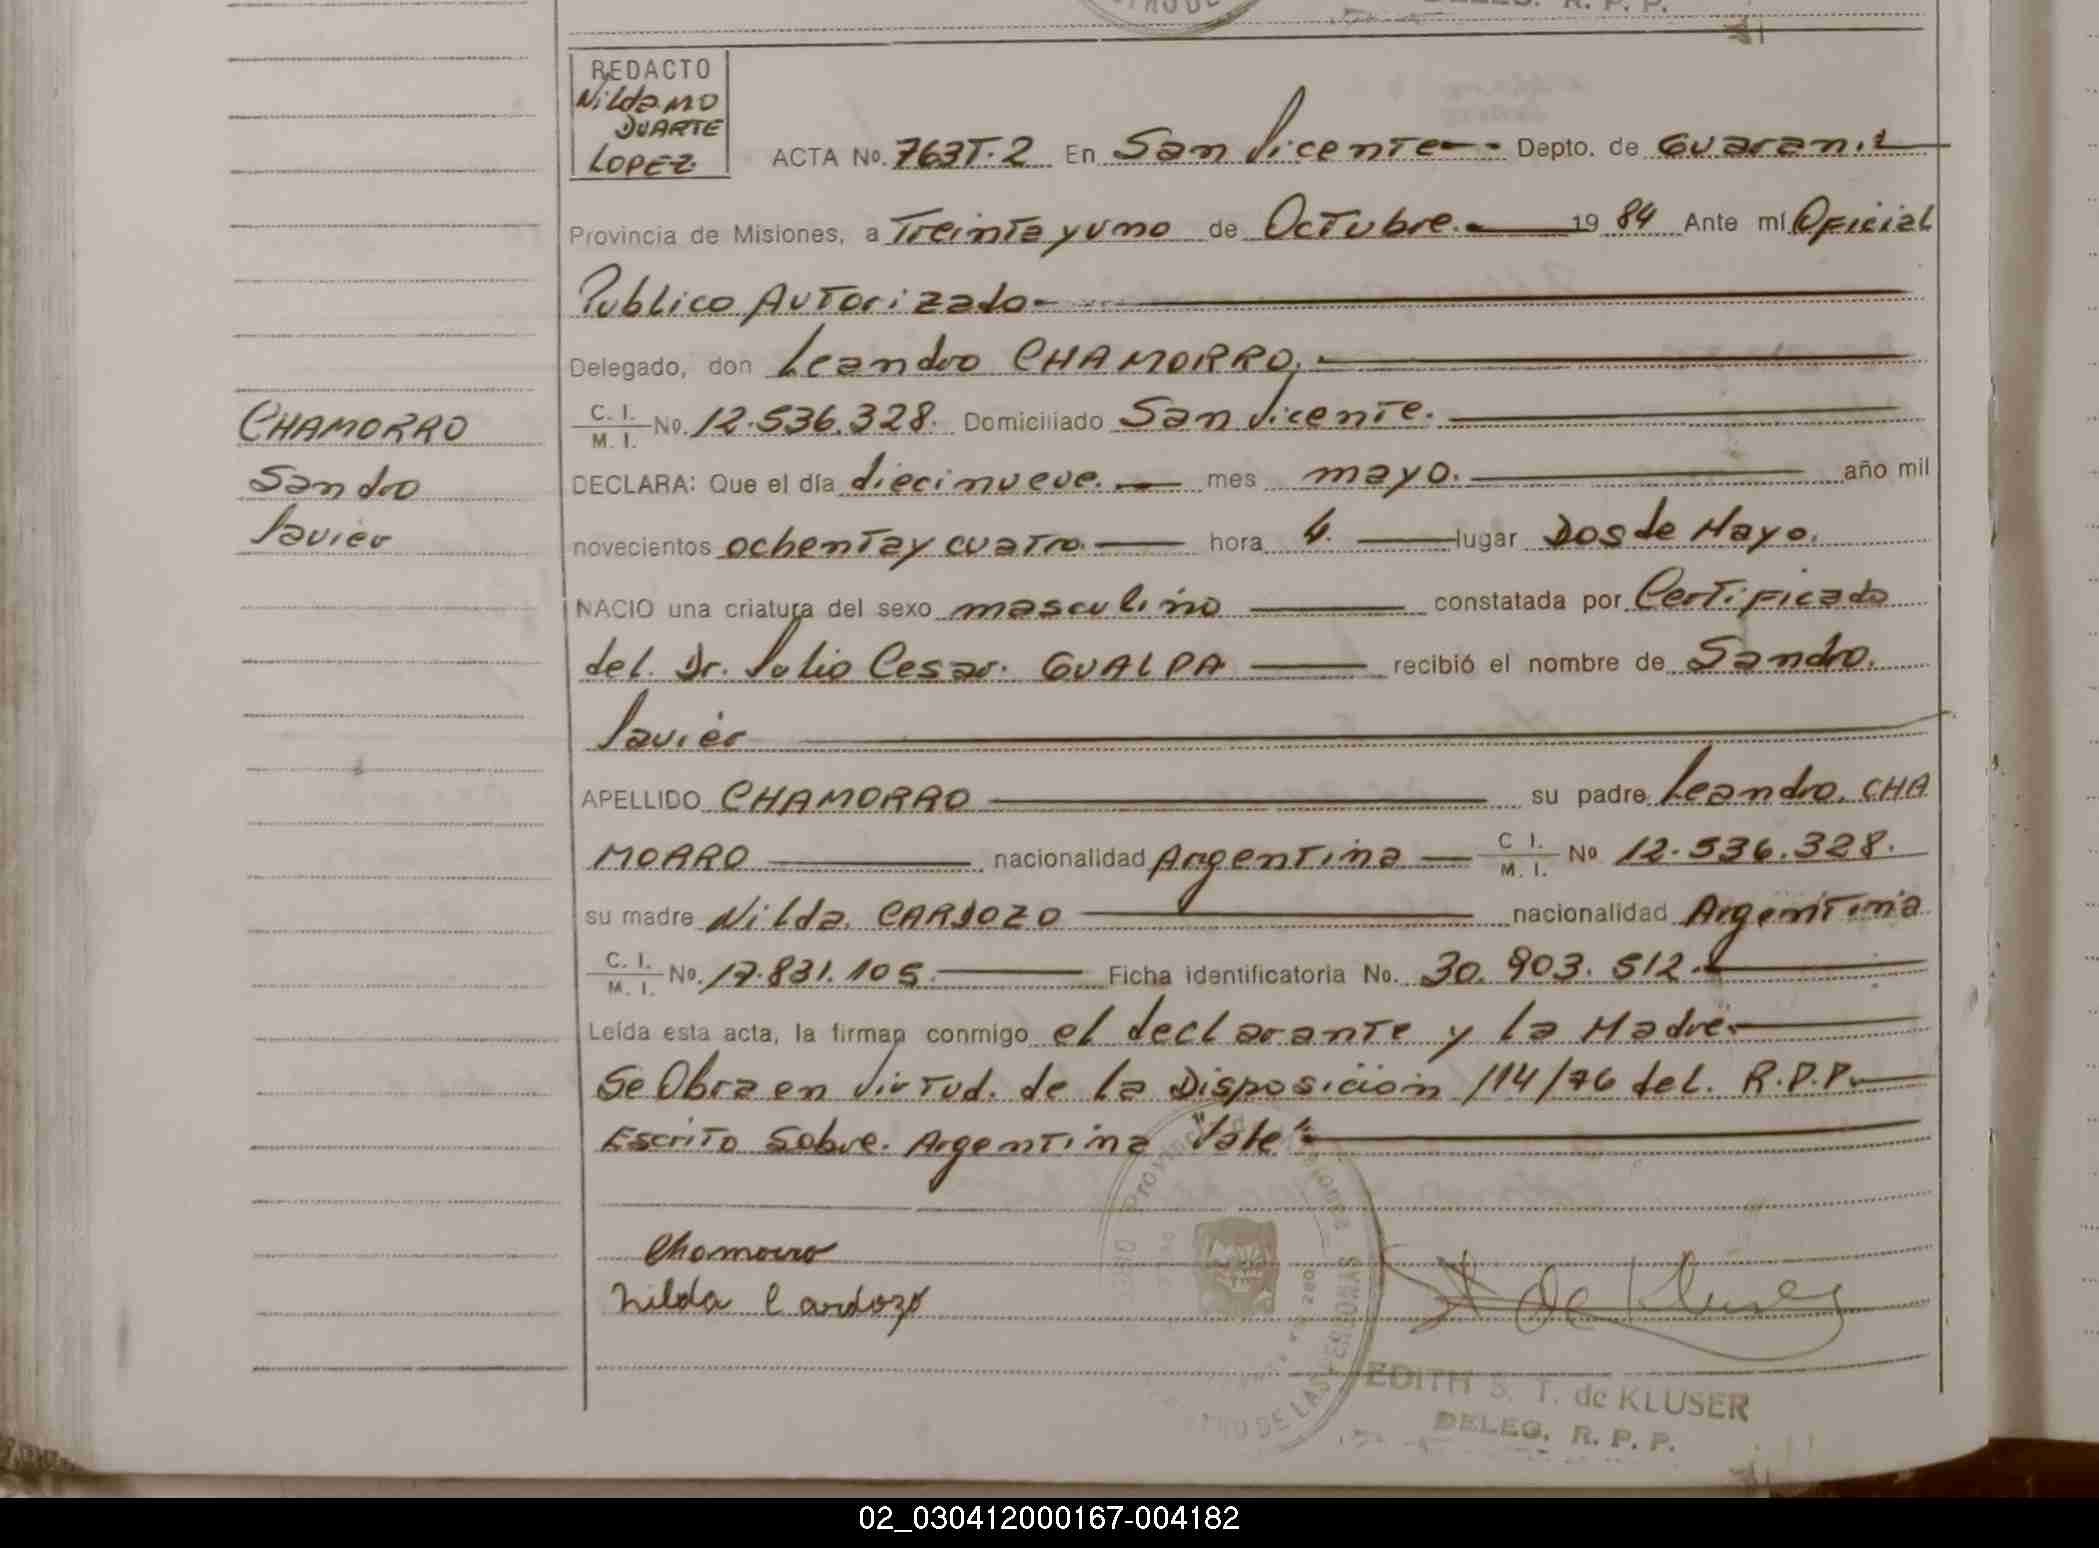 DELEG. R. P. P.
REDACTO
Nildamo
DUARTE
LOPEZ
ACTA No. 763T.2 En San Vicente Depto. de Guaraní
Provincia de Misiones, a Treinta y uno de Octubre. 1984 Ante mí Oficial
Publico Autorizado
Delegado, don Leandro CHAMORRO.
C. I. / M. I. No. 12.536.328. Domiciliado San Vicente.
CHAMORRO
Sandro
Javier
DECLARA: Que el día diecinueve. mes mayo. año mil
novecientos ochenta y cuatro hora 4. lugar Dos de Mayo.
NACIO una criatura del sexo masculino constatada por Certificado
del. Dr. Julio Cesar. GUALPA recibió el nombre de Sandro.
Javier
APELLIDO CHAMORRO su padre Leandro. CHA
MORRO nacionalidad Argentina C I. / M. I. No 12.536.328.
su madre Nilda. CARDOZO nacionalidad Argentina
C. I. / M. I. No. 17.831.105. Ficha identificatoria No. 30.903.512.
Leída esta acta, la firman conmigo el declarante y la Madre.
Se Obra en Virtud. de la Disposición 114/76 del. R.P.P.
Escrito Sobre. Argentina "Vale"
Chamorro
Nilda Cardozo
de Kluser
EDITH S. T. de KLUSER
DELEG. R. P. P.
02_030412000167-004182